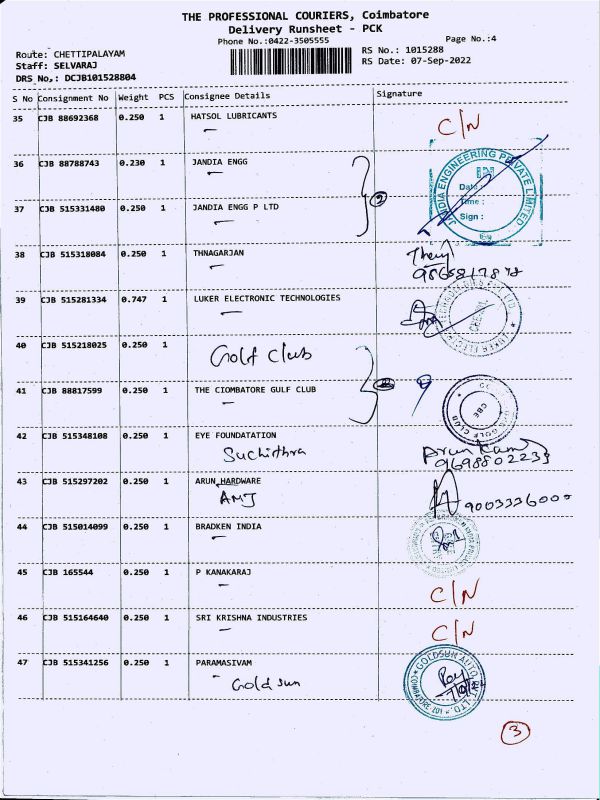 THE PROFESSIONAL COURIERS, Coimbatore
Delivery Runsheet - PCK
Phone No.:0422-3505555
Page No.:4
Route: CHETTIPALAYAM
RS No.: 1015288
Staff: SELVARAJ
RS Date: 07-Sep-2022
DRS No,: DCJB101528804
S No Consignment No Weight PCS Consignee Details Signature
35 CJB 88692368 0.250 1 HATSOL LUBRICANTS
C/N
36 CJB 88788743 0.230 1 JANDIA ENGG
JANDIA ENGINEERING PRIVATE LIMITED
IN
Date :
Time :
Sign :
37 CJB 515331480 0.250 1 JANDIA ENGG P LTD
2
38 CJB 515318084 0.250 1 THNAGARJAN
39 CJB 515281334 0.747 1 LUKER ELECTRONIC TECHNOLOGIES
40 CJB 515218025 0.250 1
Golf Club
41 CJB 88817599 0.250 1 THE CIOMBATORE GULF CLUB
CBE
GOLF CLUB
42 CJB 515348108 0.250 1 EYE FOUNDATATION
Suchithra
9698802233
43 CJB 515297202 0.250 1 ARUN HARDWARE
AMJ
9003336000
44 CJB 515014099 0.250 1 BRADKEN INDIA
45 CJB 165544 0.250 1 P KANAKARAJ
C/N
46 CJB 515164640 0.250 1 SRI KRISHNA INDUSTRIES
C/N
47 CJB 515341256 0.250 1 PARAMASIVAM
Gold sun
GOLDSUN AUTO
3